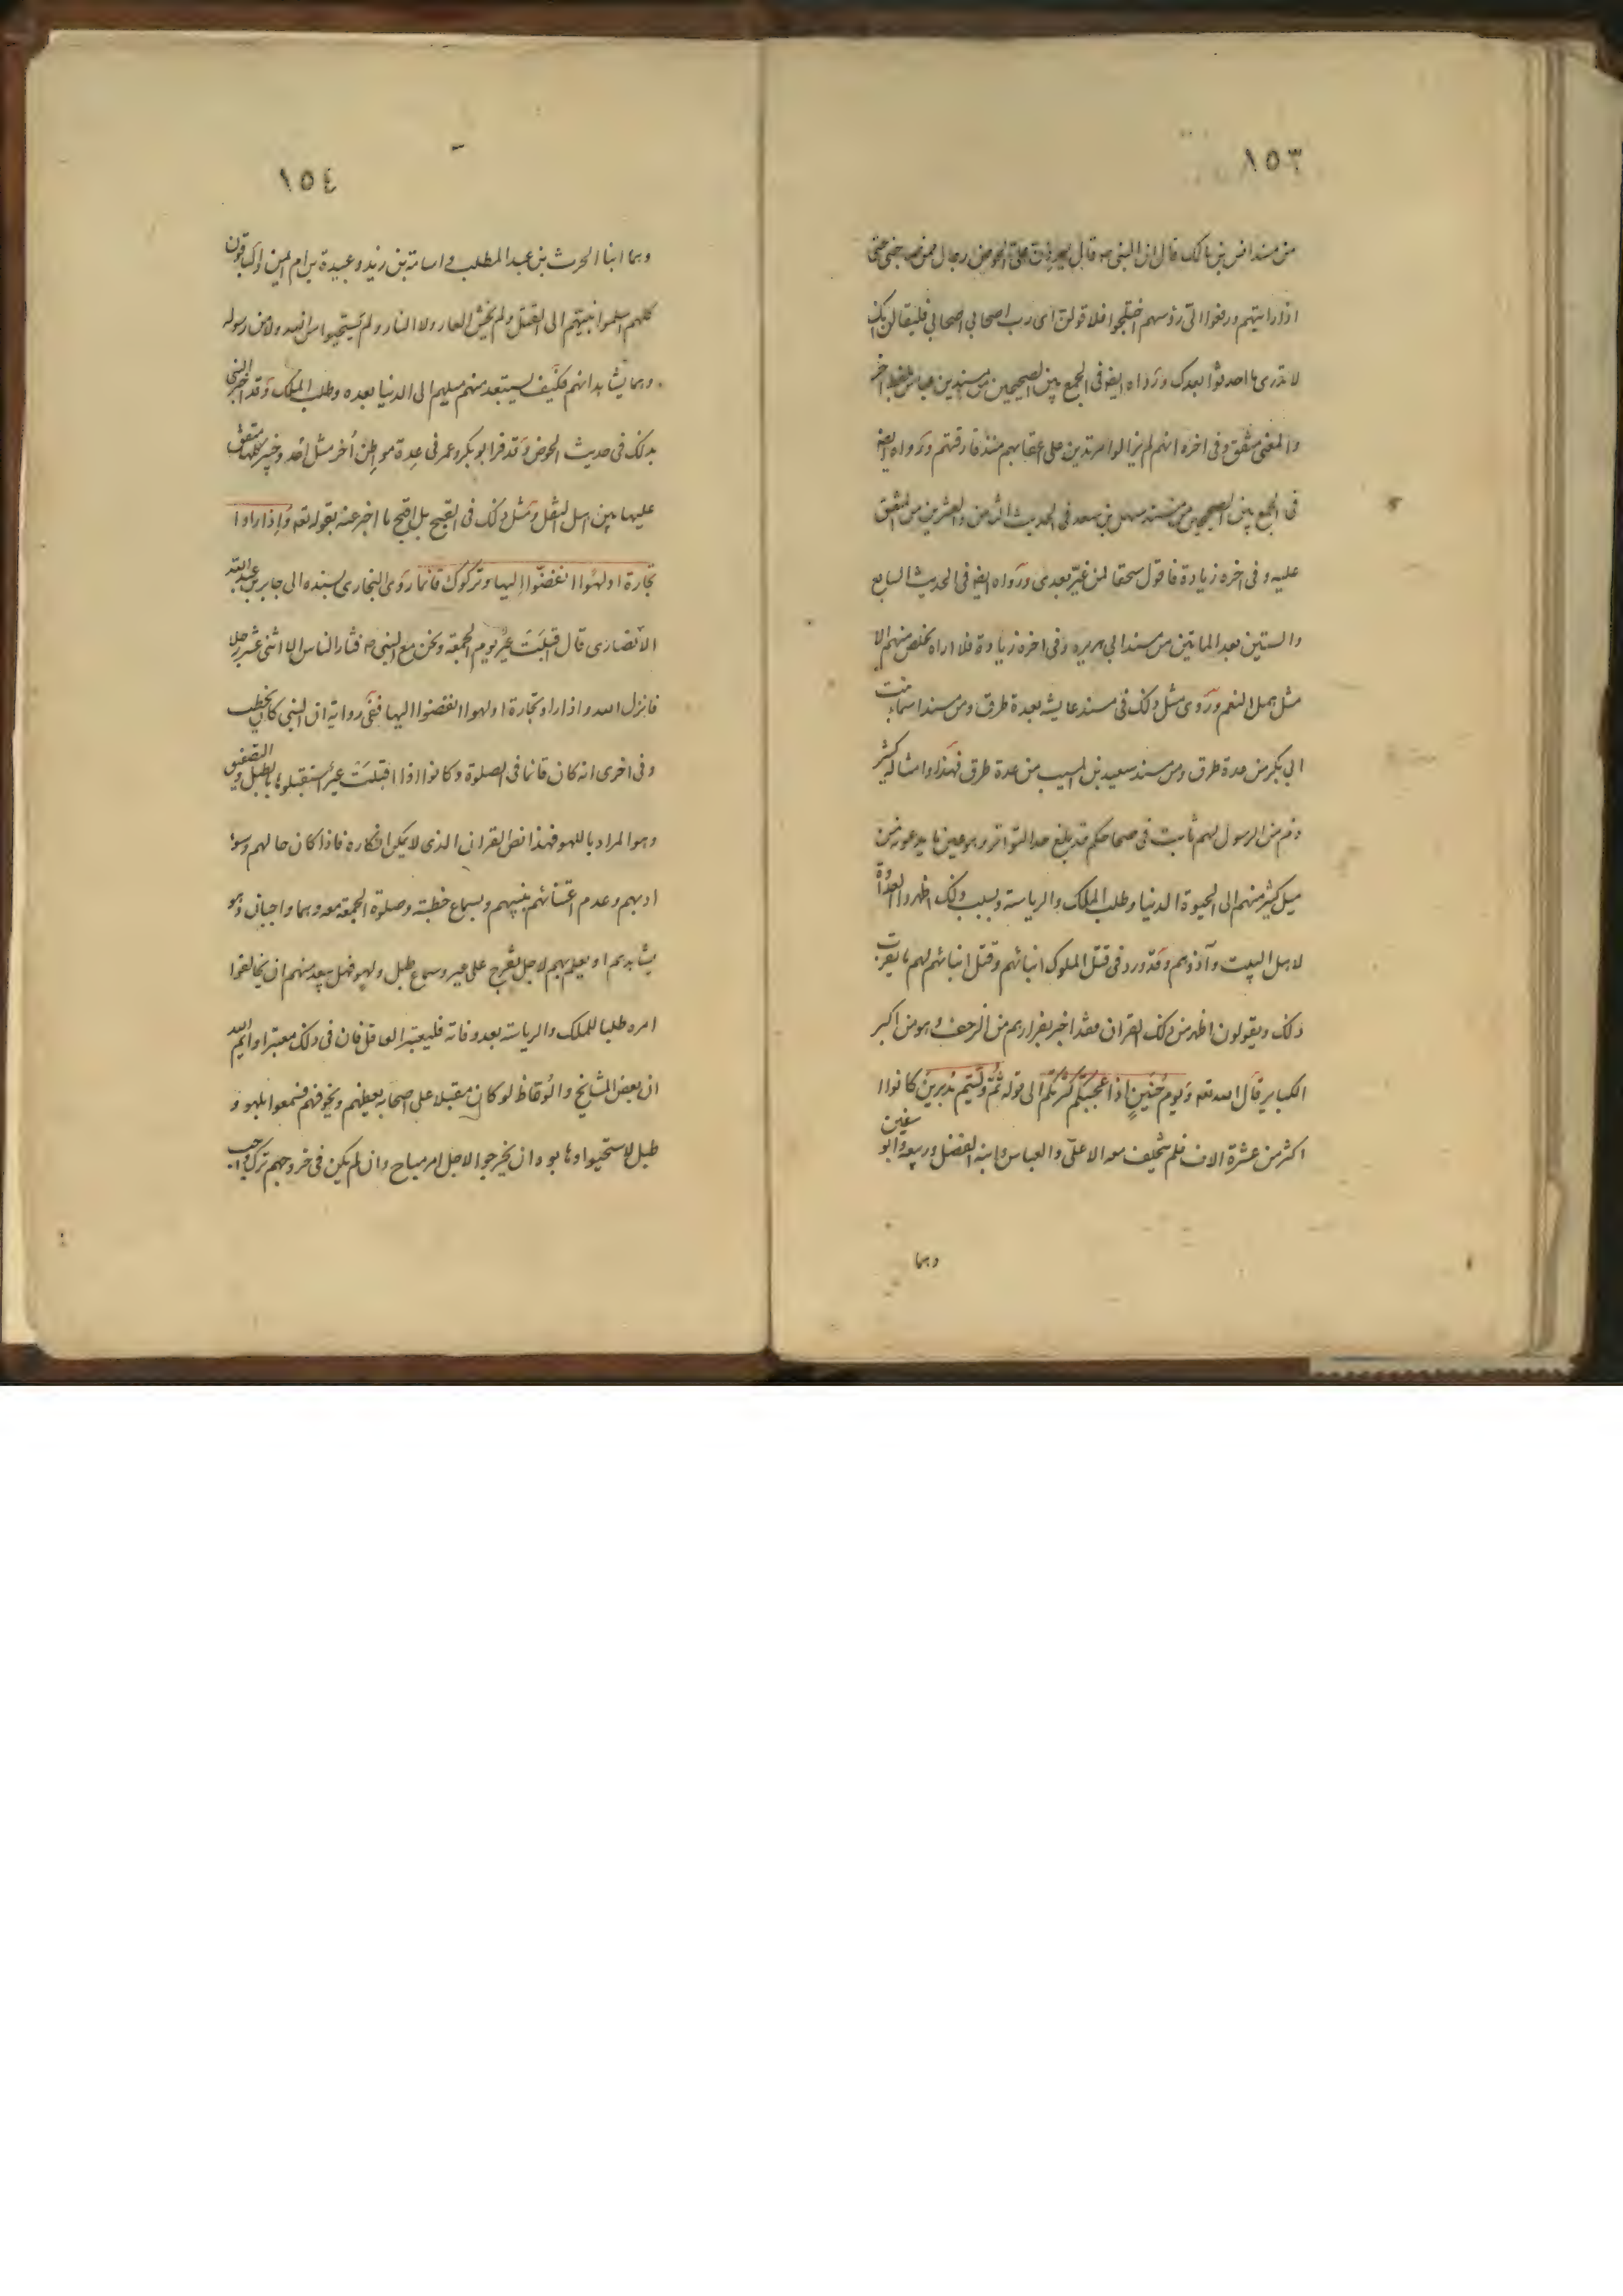 ١٥٣
من مسند انس بن مالك قال ان النبى ص قال ليردن على الحوض رجال ممن صاحبنى حتى
اذا رايتهم ورفعوا الى رؤسهم اختلجوا فلا قولن اى رب اصحابى اصحابى فليقالن انك
لا تدرى ما احدثوا بعدك ورواه ايضا فى الجمع بين الصحيحين من مسند ابن عباس بلفظ اخر
والمعنى متفق وفى اخره انهم لم يزالوا مرتدين على اعقابهم منذ فارقتهم ورواه ايضا
فى الجمع بين الصحيحين من مسند سهل بن سعد فى الحديث الثامن والعشرين من المتفق
عليه وفى اخره زيادة فاقول سحقا لمن غيّر بعدى ورواه ايضا فى الحديث السابع
والستين بعد الماتين من مسند ابى هريره وفى اخره زيادة فلا اراه يخلص منهم الا
مثل همل النعم وروى مثل ذلك فى مسند عايشه بعدة طرق ومن مسند اسماء بنت
ابى بكر من عدة طرق ومن مسند سعيد بن المسيب من عدة طرق فهذا وامثاله كثير
وذم من الرسول لهم ثابت فى صحاحكم قد بلغ حد التواتر وهو عين ما يدعونه من
ميل كثير منهم الى الحيوة الدنيا وطلب الملك والرياسة وبسبب ذلك اظهروا العداوة
لاهل البيت وآذوهم وقد ورد فى قتل الملوك ابنائهم وقتل ابنائهم لهم ما يقرب
ذلك ويقولون اظهر من ذلك القران فقد اخبر بفرارهم من الزحف وهو من اكبر
الكباير قال الله تعه ويوم حنين اذ اعجبتكم كثرتكم الى قوله ثم وليتم مدبرين كانوا
اكثر من عشرة الاف فلم يتخلف معه الا علىّ والعباس وابنه الفضل وربيعه وابو سفين
وهما
١٥٤
وهما ابنا الحرث بن عبد المطلب واسامة بن زيد وعبيدة بن ام ايمن والباقون
كلهم اسلموا نبيّهم الى القتل ولم يخش العار ولا النار ولم يستحيوا من الله ولا من رسوله
وهما يشاهدانهم فكيف يستبعد منهم ميلهم الى الدنيا بعده وطلب الملك وقد اخبر النبى
بذلك فى حديث الحوض وقد فرا ابو بكر وعمر فى عدة مواطن اُخر مثل اُحد وخيبر كلها متفق
عليها بين اهل النقل ومثل ذلك فى القبح بل اقبح ما اخبر عنه بقوله تعه واذا راوا
تجارة او لهوا انفضّوا اليها وتركوك قائما روى البخارى بسنده الى جابر بن عبد الله
الانصارى قال اقبلت عير يوم الجمعه ونحن مع النبى ص فثار الناس الا اثنى عشر رجلا
فانزل الله واذا راو تجارة او لهوا انفضوا اليها ففى رواية ان النبى كان يخطب
وفى اخرى انه كان قائما فى الصلوة وكانوا اذا اقبلت عير استقبلوها بالطبل والتصفيق
وهو المراد باللهو فهذا نص القران الذى لا يمكن انكاره فاذا كان حالهم وسوء
ادبهم وعدم اعتنائهم بنبيهم وبسماع خطبته وصلوة الجمعه معه وهما واجبان وهو
يشاهدهم او يعلم بهم لاجل تفرج على عير وسماع طبل ولهو فهل يبعد منهم ان يخالفوا
امره طلبا للملك والرياسة بعد وفاته فليعتبر العاقل فان فى ذلك معتبرا وايم الله
ان بعض المشايخ والوعاظ لو كان مقبلا على اصحابه يعظهم ويخوفهم فسمعوا بلهو و
طبل لاستحيوا وهابوه ان يخرجوا لاجل امر مباح وان لم يكن فى خروجهم ترك واجب